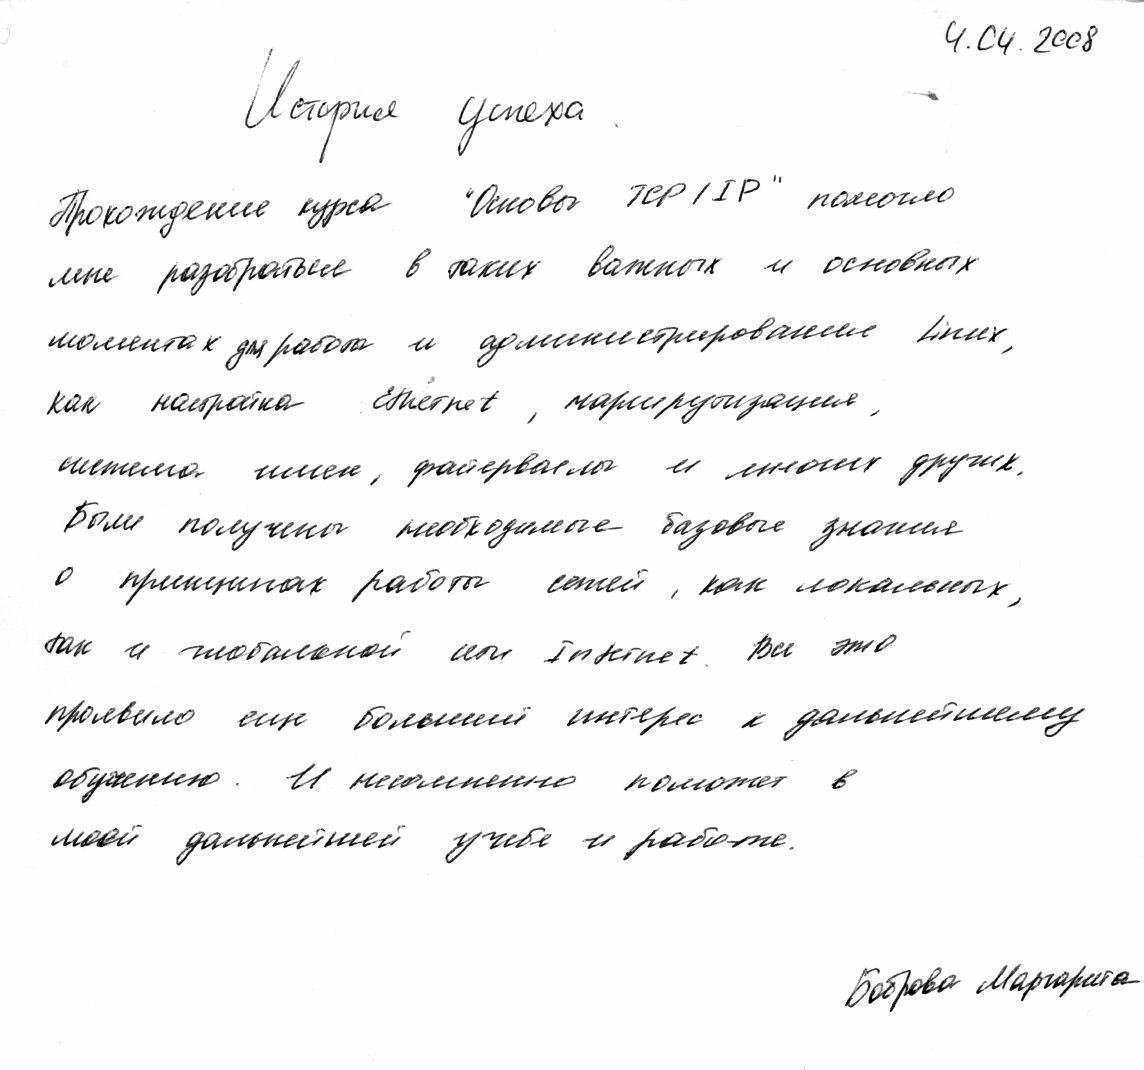 4.04.2008
История успеха.
Прохождение курса "Основы TCP/IP" помогло
мне разобраться в таких важных и основных
моментах для работы и администрирования Linux,
как настройка Ethernet, маршрутизация,
система имен, файерваелы и многих других.
Были получены необходимые базовые знания
о принципах работы сетей, как локальных,
так и глобальной сети Internet. Все это
проявило еще больший интерес к дальнейшему
обучению. И несомненно поможет в
моей дальнейшей учебе и работе.
Боброва Маргарита